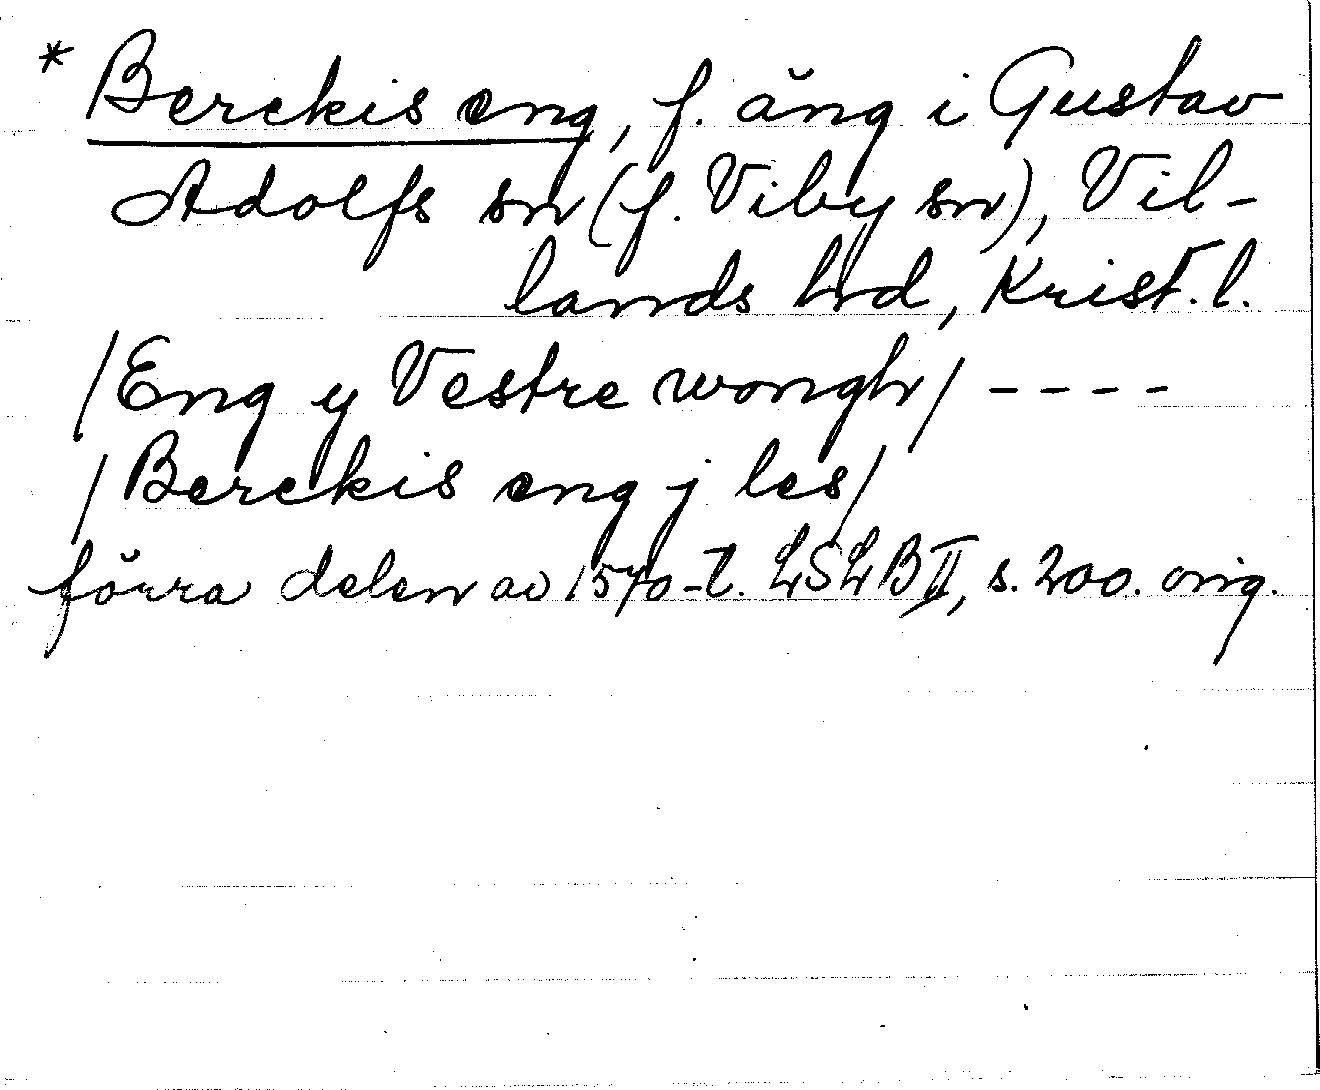 * Berckis eng, f. äng i Gustav
Adolfs sn (f. Viby sn), Vil-
lands hd, Krist. l.
/Eng y Vestre wongh/ ----
/Berckis eng j les/
förra delen av 1570-t. LSLB II, s. 200. orig.